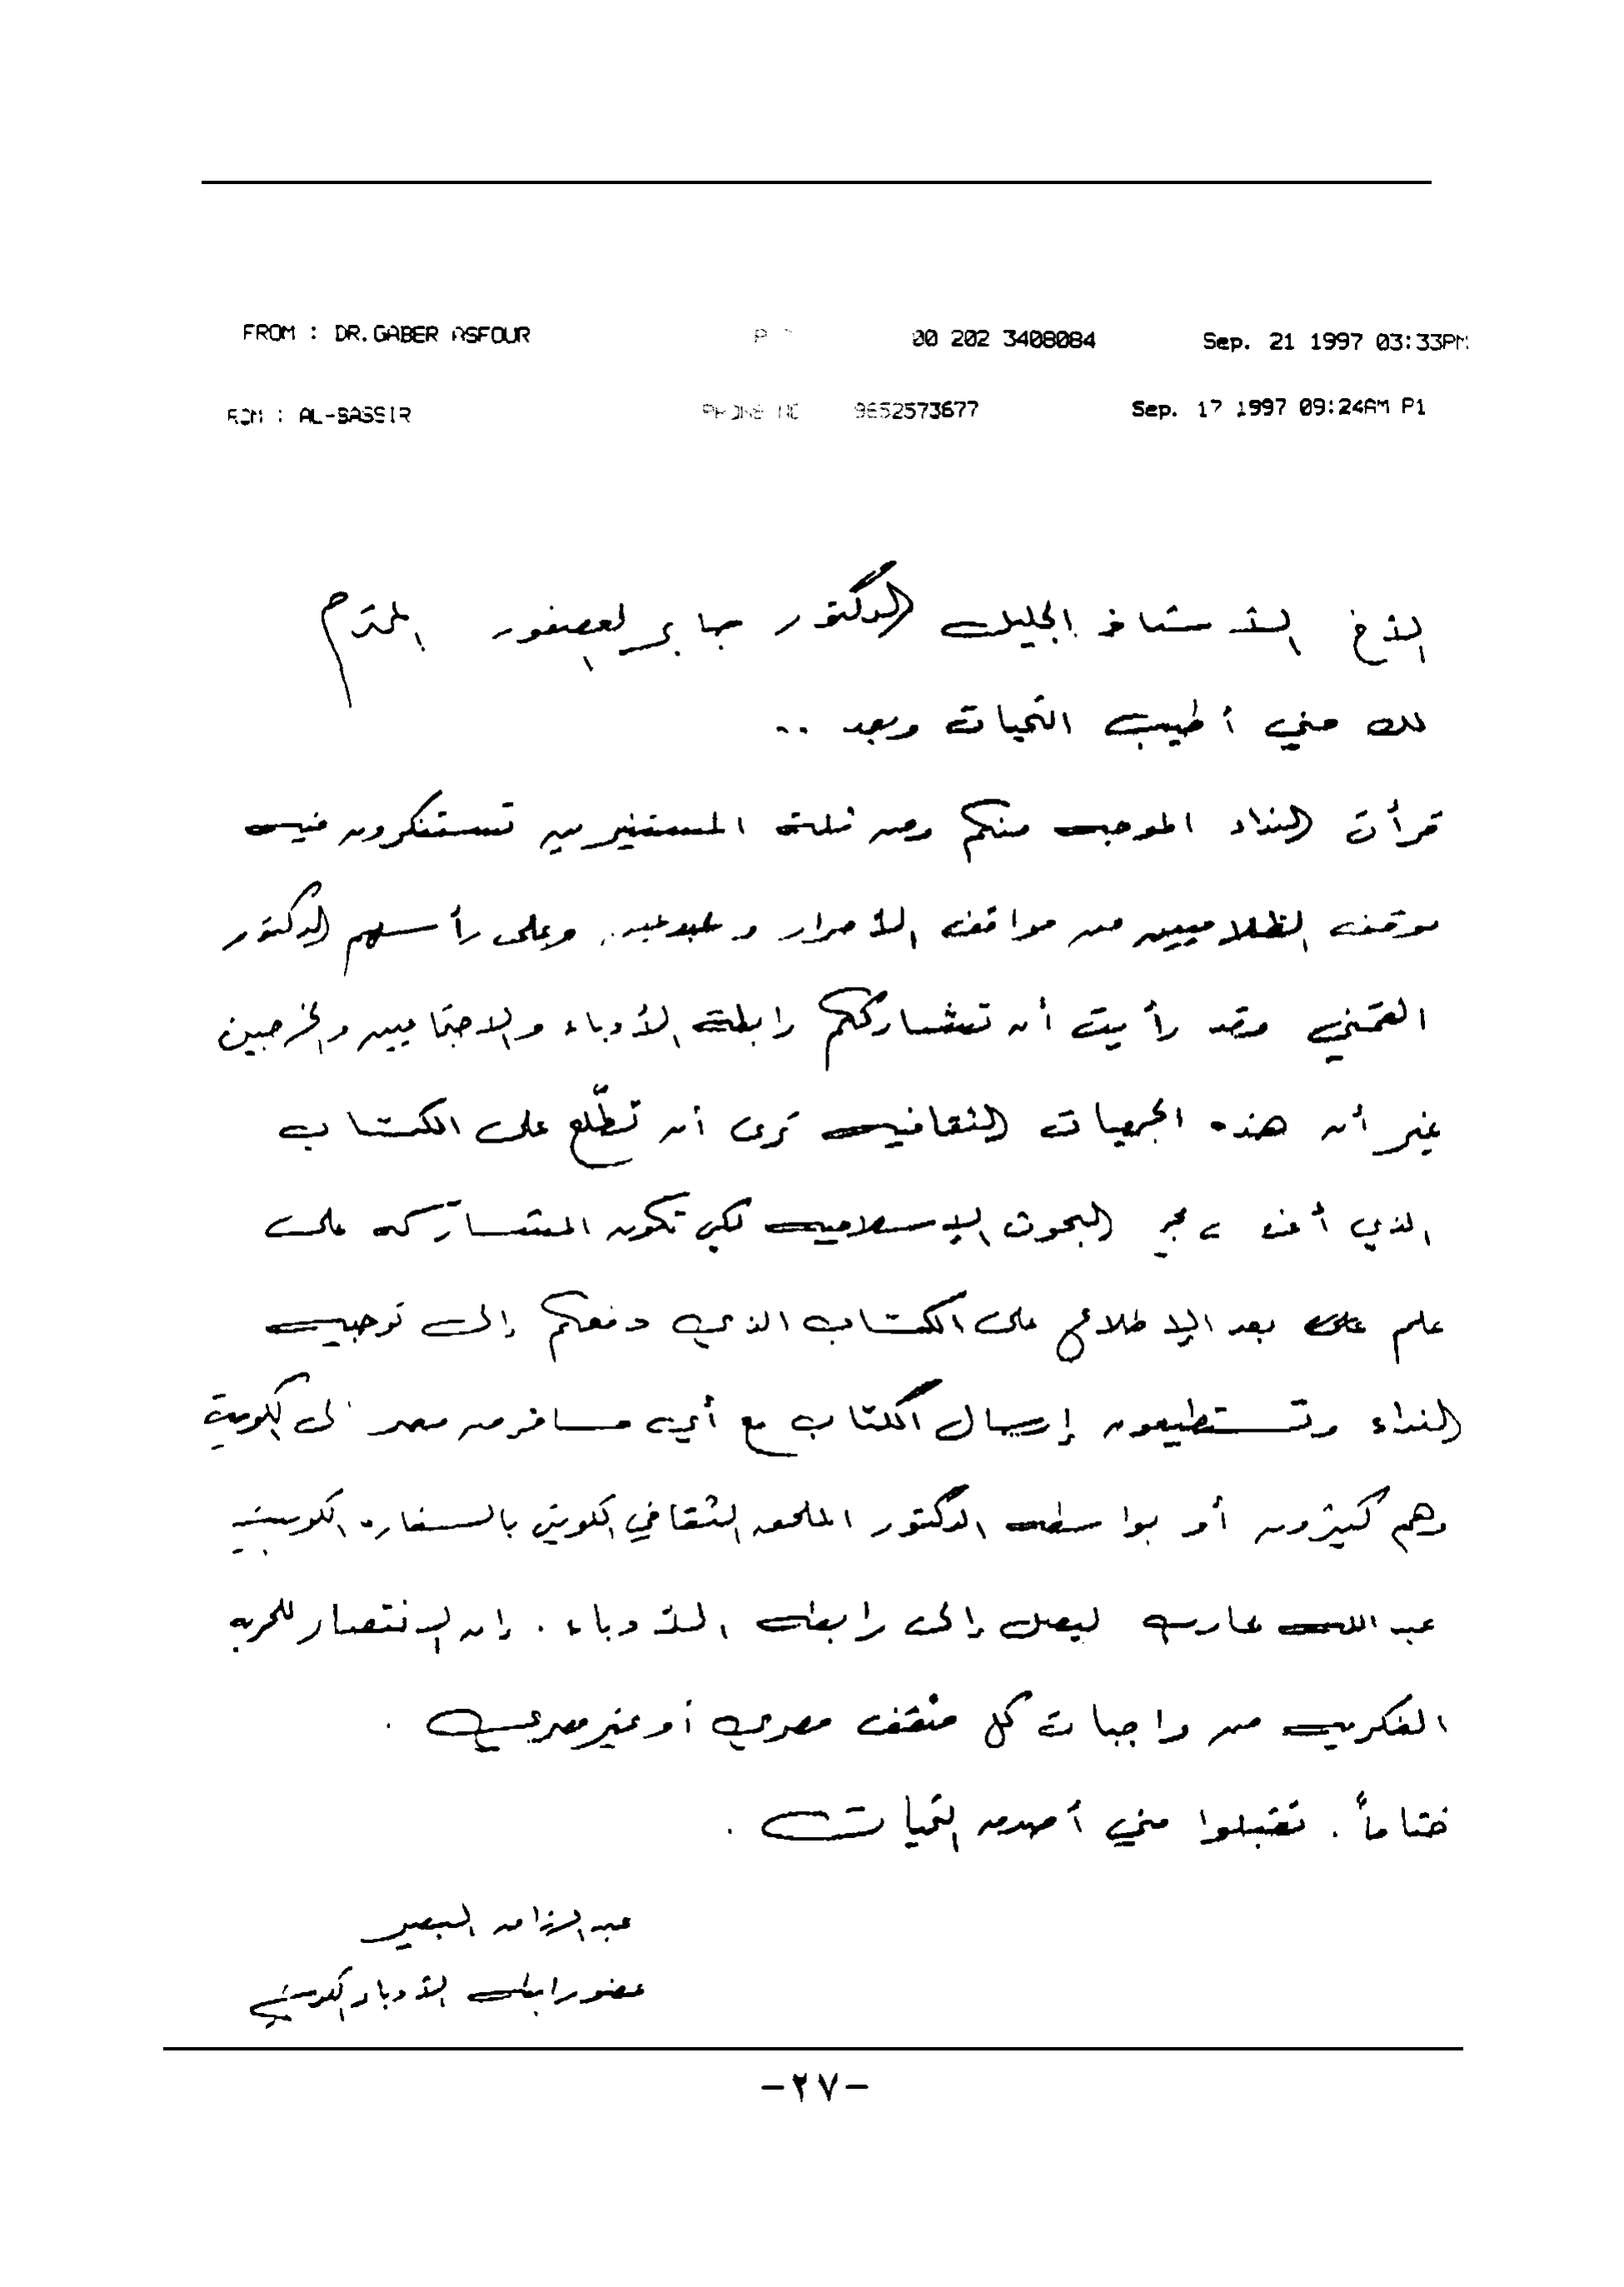 FROM : DR.GABER ASFOUR 00 202 3408084 Sep. 21 1997 03:33PM
ROM : AL-BASSIR PHONE NO 9652573677 Sep. 17 1997 09:24AM P1
الأخ الأستاذ الجليل الدكتور جابر العصفور المحترم
لك مني أطيب التحيات وبعد ..
قرأت النداء الموجه منكم ومن ثلة المستنيرين تستنكرون فيه
موقف الظلاميين من مواقف الأحرار وعلى رأسهم الدكتور
القمني وقد رأيت أن تشارككم رابطة الأدباء والاجتماعيين والخرجين
غير أن هذه الجمعيات الثقافية ترى أن تطّلع على الكتاب
الذي البحوث الإسلامية لكي تكون المشاركة على
علم بعد الإطلاع على الكتاب الذي دفعكم إلى توجيه
النداء وتستطيعون إرسال الكتاب مع أي مسافر من مصر الى الكويت
وهم كثيرون أو بواسطة الدكتور الملحق الثقافي الكويتي بالسفارة الكويتية
عبد الله ليصل إلى رابطة الأدباء . إن الإنتصار للحرية
الفكرية من واجبات كل مثقف مصري أو غير مصري .
ختاماً . تقبلوا مني أصدق التحيات .
عبد الرزاق البصير
عضو رابطة الأدباء الكويتي
-٢٧-